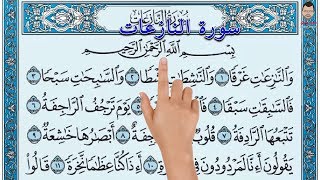 سورة النازعات
بِسْمِ اللَّهِ الرَّحْمَٰنِ الرَّحِيمِ
وَالنَّازِعَاتِ غَرْقًا ١ وَالنَّاشِطَاتِ نَشْطًا ٢ وَالسَّابِحَاتِ سَبْحًا ٣
فَالسَّابِقَاتِ سَبْقًا ٤ يَوْمَ تَرْجُفُ الرَّاجِفَةُ ٦
تَتْبَعُهَا الرَّادِفَةُ ٧ قُلُوبٌ ٨ أَبْصَارُهَا خَاشِعَةٌ ٩
يَقُولُونَ أَءِنَّا لَمَرْدُودُونَ فِي ١٠ أَءِذَا كُنَّا عِظَامًا نَّخِرَةً ١١ قَالُوا